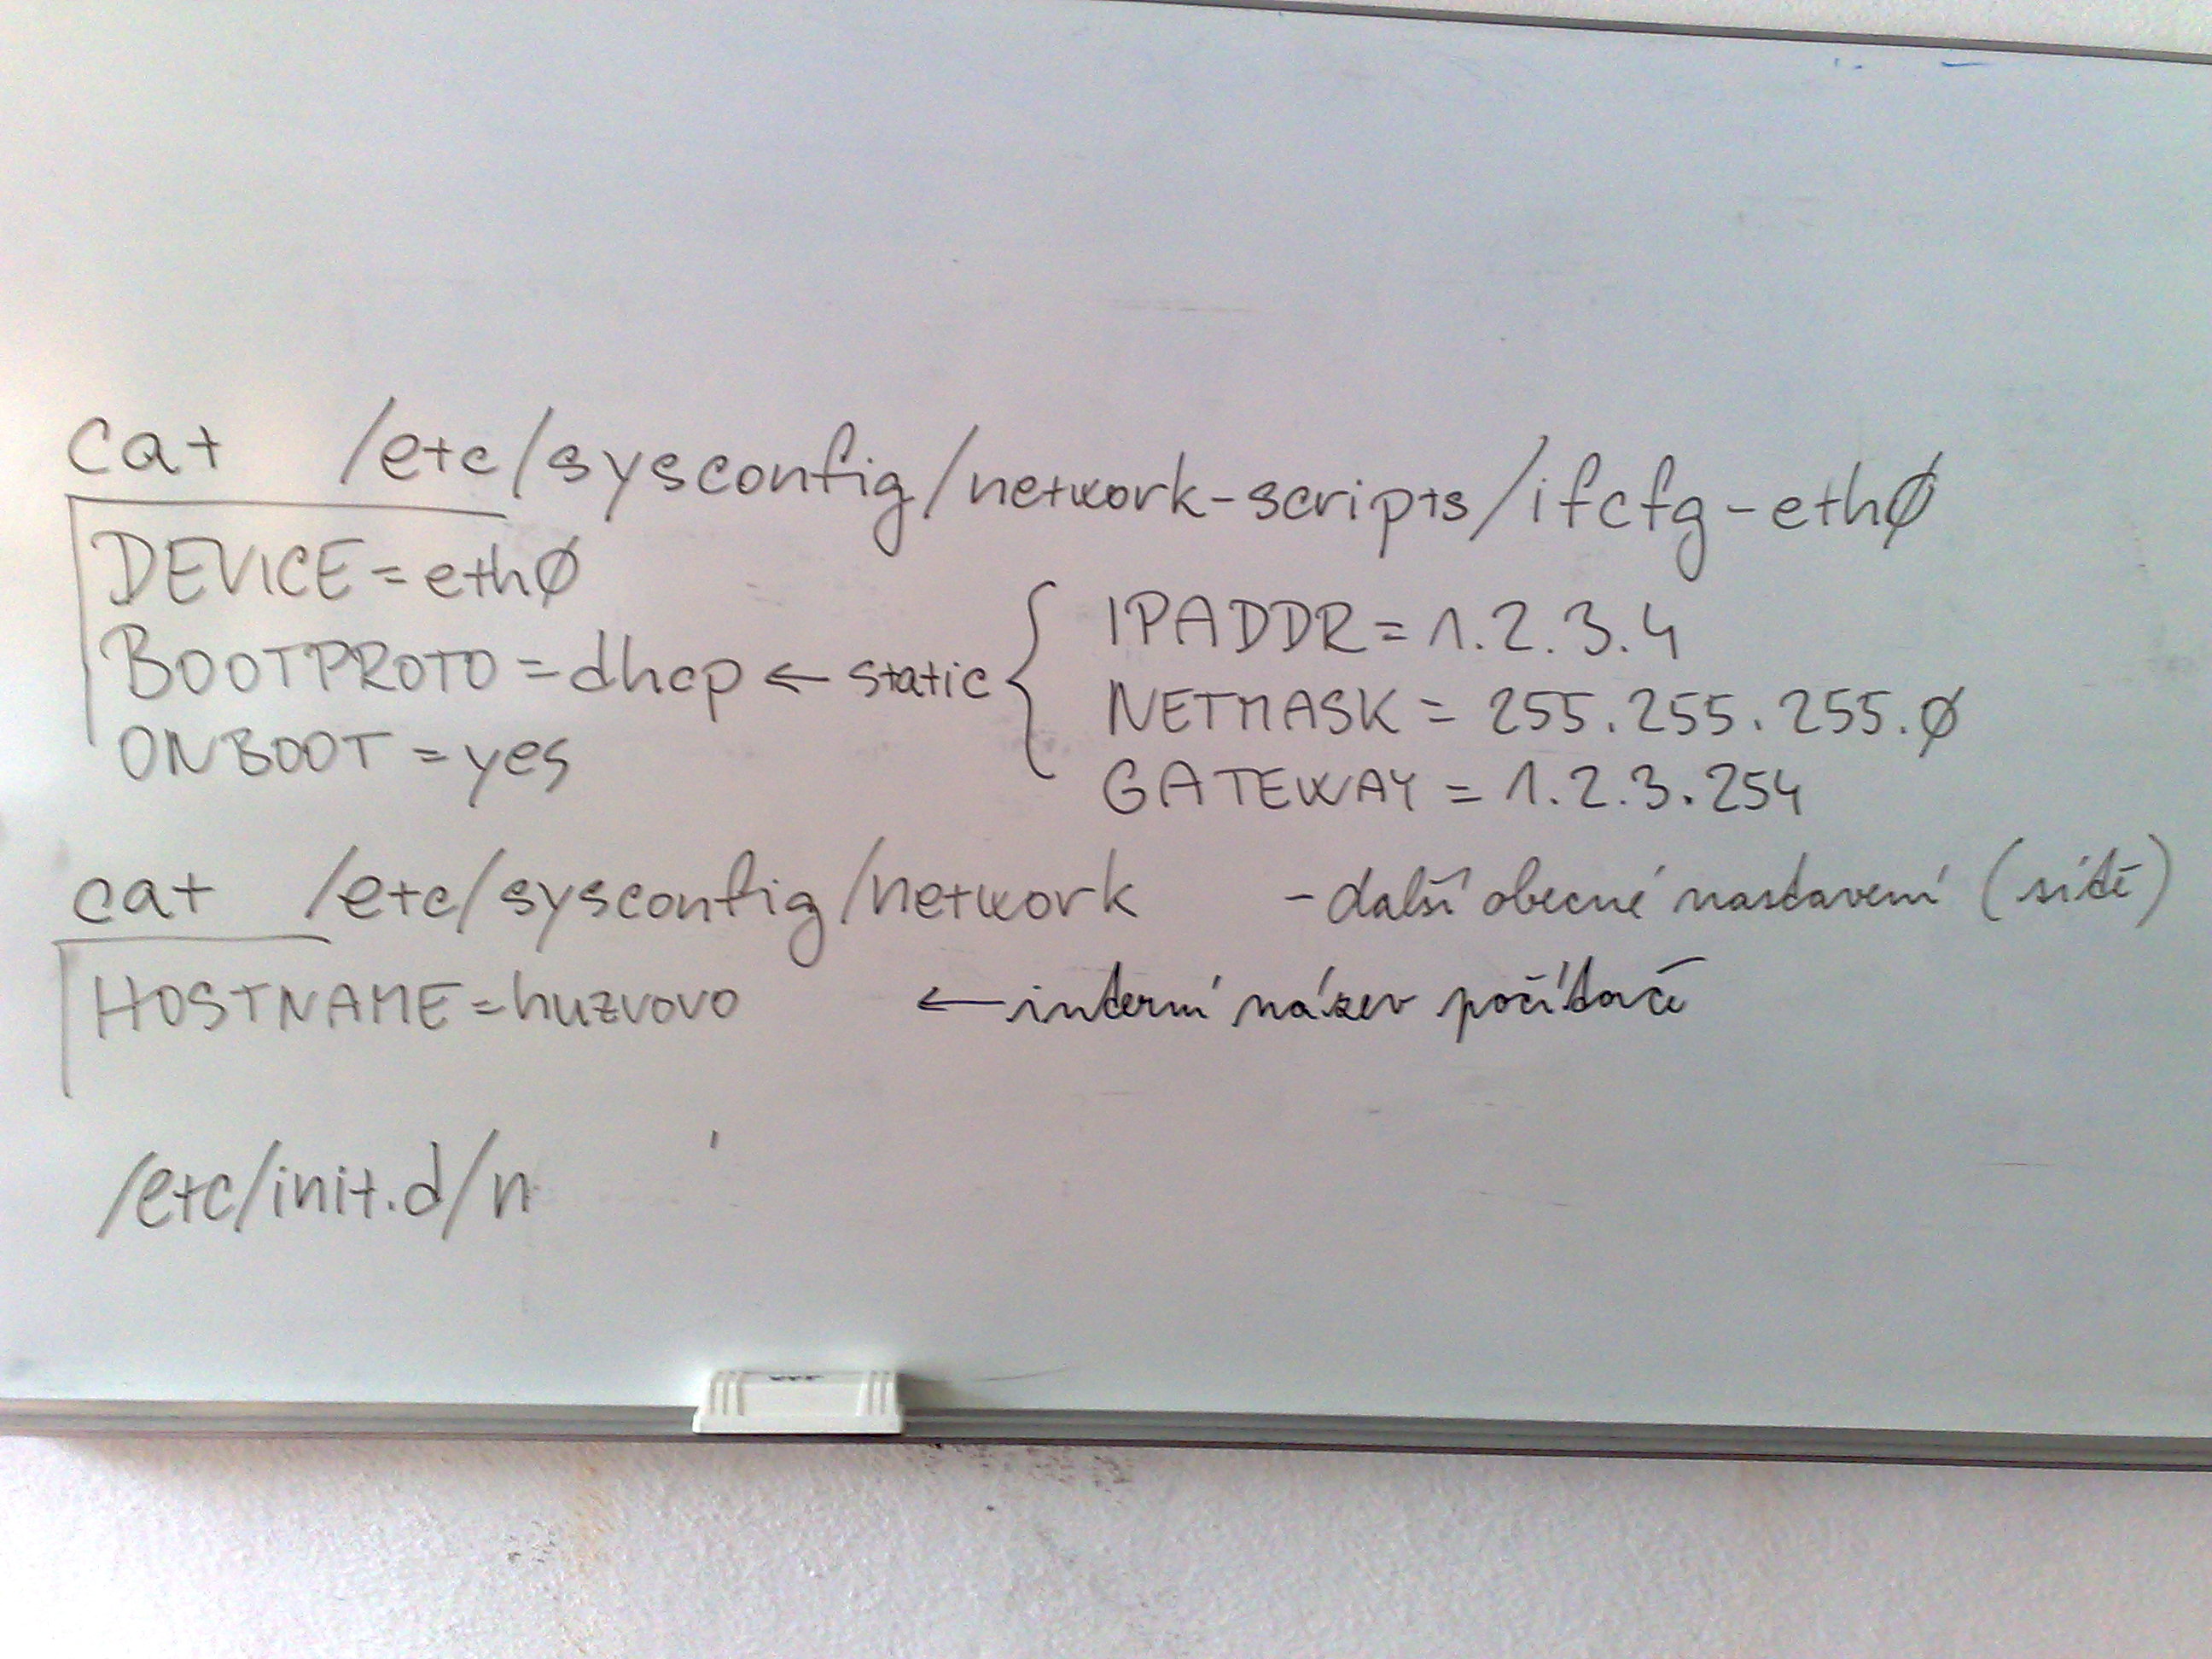 cat /etc/sysconfig/network-scripts/ifcfg-eth0
DEVICE=eth0
BOOTPROTO=dhcp ← static {
ONBOOT=yes
IPADDR=1.2.3.4
NETMASK=255.255.255.0
GATEWAY=1.2.3.254
cat /etc/sysconfig/network - další obecné nastavení (sítě)
HOSTNAME=huzvovo ← interní název počítače
/etc/init.d/n